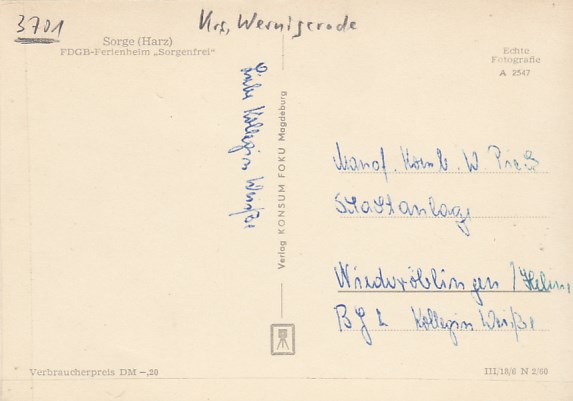 3701
Krs, Wernigerode
Sorge (Harz)
FDGB-Ferienheim „Sorgenfrei“
Echte
Fotografie
A 2547
Liebe Kollegin Weiße
Verlag KONSUM FOKU Magdeburg
Komb. W. Pieck
Wiederöblingen / Helme
BGL Kollegin Weiße
Verbraucherpreis DM —,20
III/18/6 N 2/60